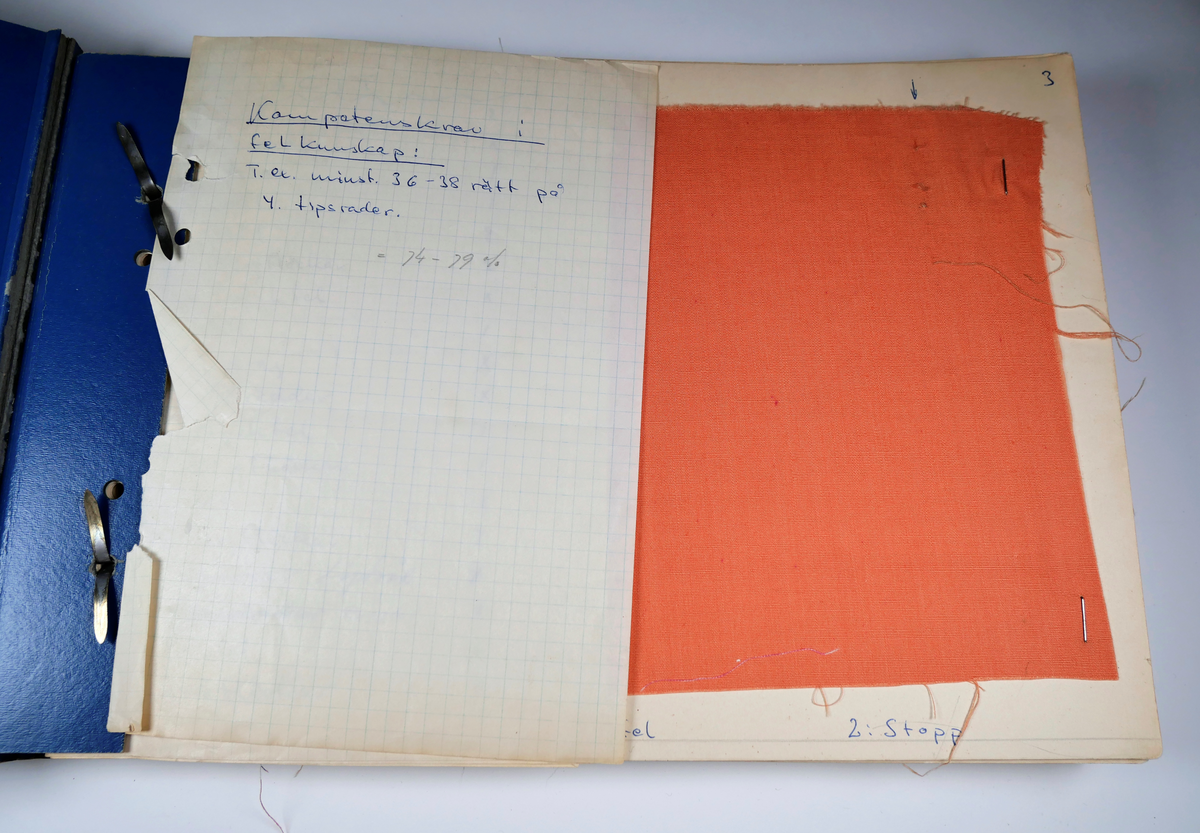 3
Kompetenskrav i
felkunskap:
T.ex. minst. 36-38 rätt på
4. tipsrader.
= 74 - 79 %
el 2: Stopp